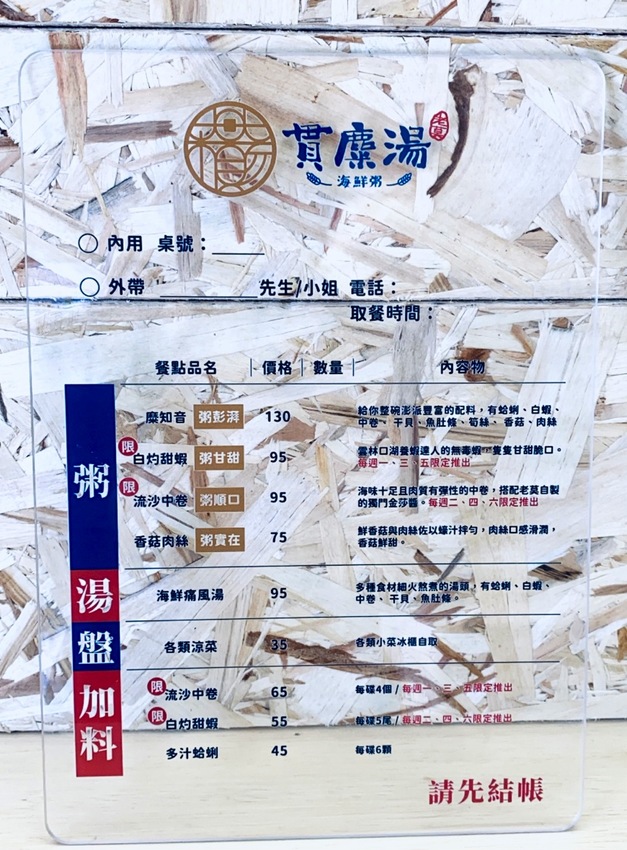 貫糜湯
海鮮粥
內用 桌號：
外帶 先生/小姐 電話：
取餐時間：
餐點品名 價格 數量 內容物
粥
糜知音 粥彭湃 130 給你整碗澎派豐富的配料，有蛤蜊、白蝦、
中卷、干貝、魚肚條、筍絲、香菇、肉絲
限 白灼甜蝦 粥甘甜 95 雲林口湖養蝦達人的無毒蝦，隻隻甘甜脆口。
每週一、三、五限定推出
限 流沙中卷 粥順口 95 海味十足且肉質有彈性的中卷，搭配老莫自製
的獨門金莎醬。每週二、四、六限定推出
香菇肉絲 粥實在 75 鮮香菇與肉絲佐以蠔汁拌勻，肉絲口感滑潤，
香菇鮮甜。
湯
海鮮痛風湯 95 多種食材細火熬煮的湯頭，有蛤蜊、白蝦、
中卷、干貝、魚肚條。
盤
各類涼菜 35 各類小菜冰櫃自取
加料
限 流沙中卷 65 每碟4個 / 每週一、三、五限定推出
限 白灼甜蝦 55 每碟5尾 / 每週二、四、六限定推出
多汁蛤蜊 45 每碟6顆
請先結帳